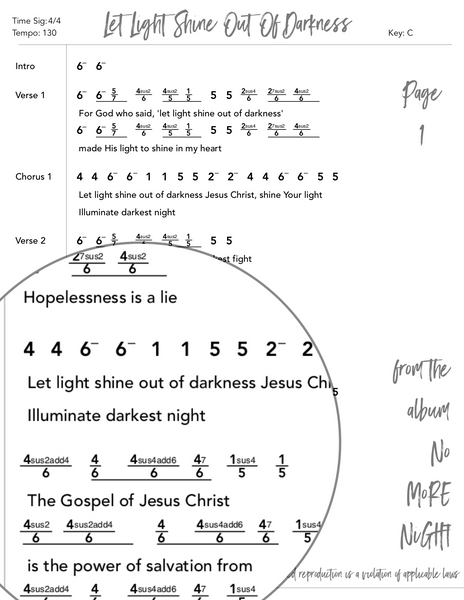 Time Sig:4/4
Tempo: 130
Let Light Shine Out Of Darkness
Key: C
Intro 6⁻ 6⁻
Page
1
Verse 1 6⁻ 6⁻ 5/7 4sus2/6 4sus2/5 1/5 5 5 2sus4/6 27sus2/6 4sus2/6
For God who said, 'let light shine out of darkness'
6⁻ 6⁻ 5/7 4sus2/6 4sus2/5 1/5 5 5 2sus4/6 27sus2/6 4sus2/6
made His light to shine in my heart
Chorus 1 4 4 6⁻ 6⁻ 1 1 5 5 2⁻ 2⁻ 4 4 6⁻ 6⁻ 5 5
Let light shine out of darkness Jesus Christ, shine Your light
Illuminate darkest night
Verse 2 6⁻ 6⁻ 5/7 4sus2/6 4sus2/5 1/5 5 5
fight
27sus2/6 4sus2/6
Hopelessness is a lie
4 4 6⁻ 6⁻ 1 1 5 5 2⁻ 2
Let light shine out of darkness Jesus Chr
5
Illuminate darkest night
4sus2add4/6 4/6 4sus4add6/6 47/6 1sus4/5 1/5
The Gospel of Jesus Christ
4sus2/6 4sus2add4/6 4/6 4sus4add6/6 47/6 1sus4/5
is the power of salvation from
4sus2add4 4 4sus4add6 47 1sus4 1
from the
album
No
MoRE
NiGHT
reproduction is a violation of applicable laws